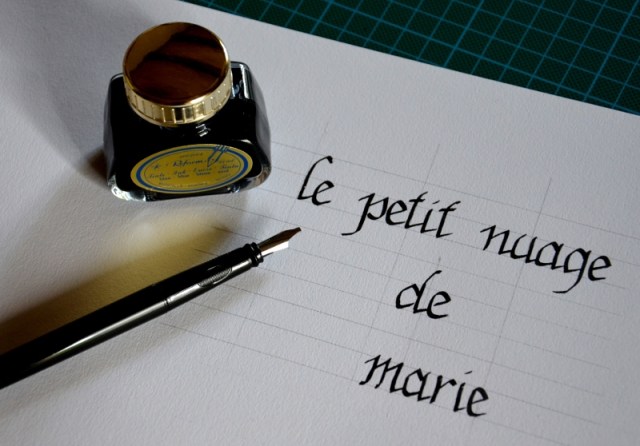 le petit nuage
de
marie